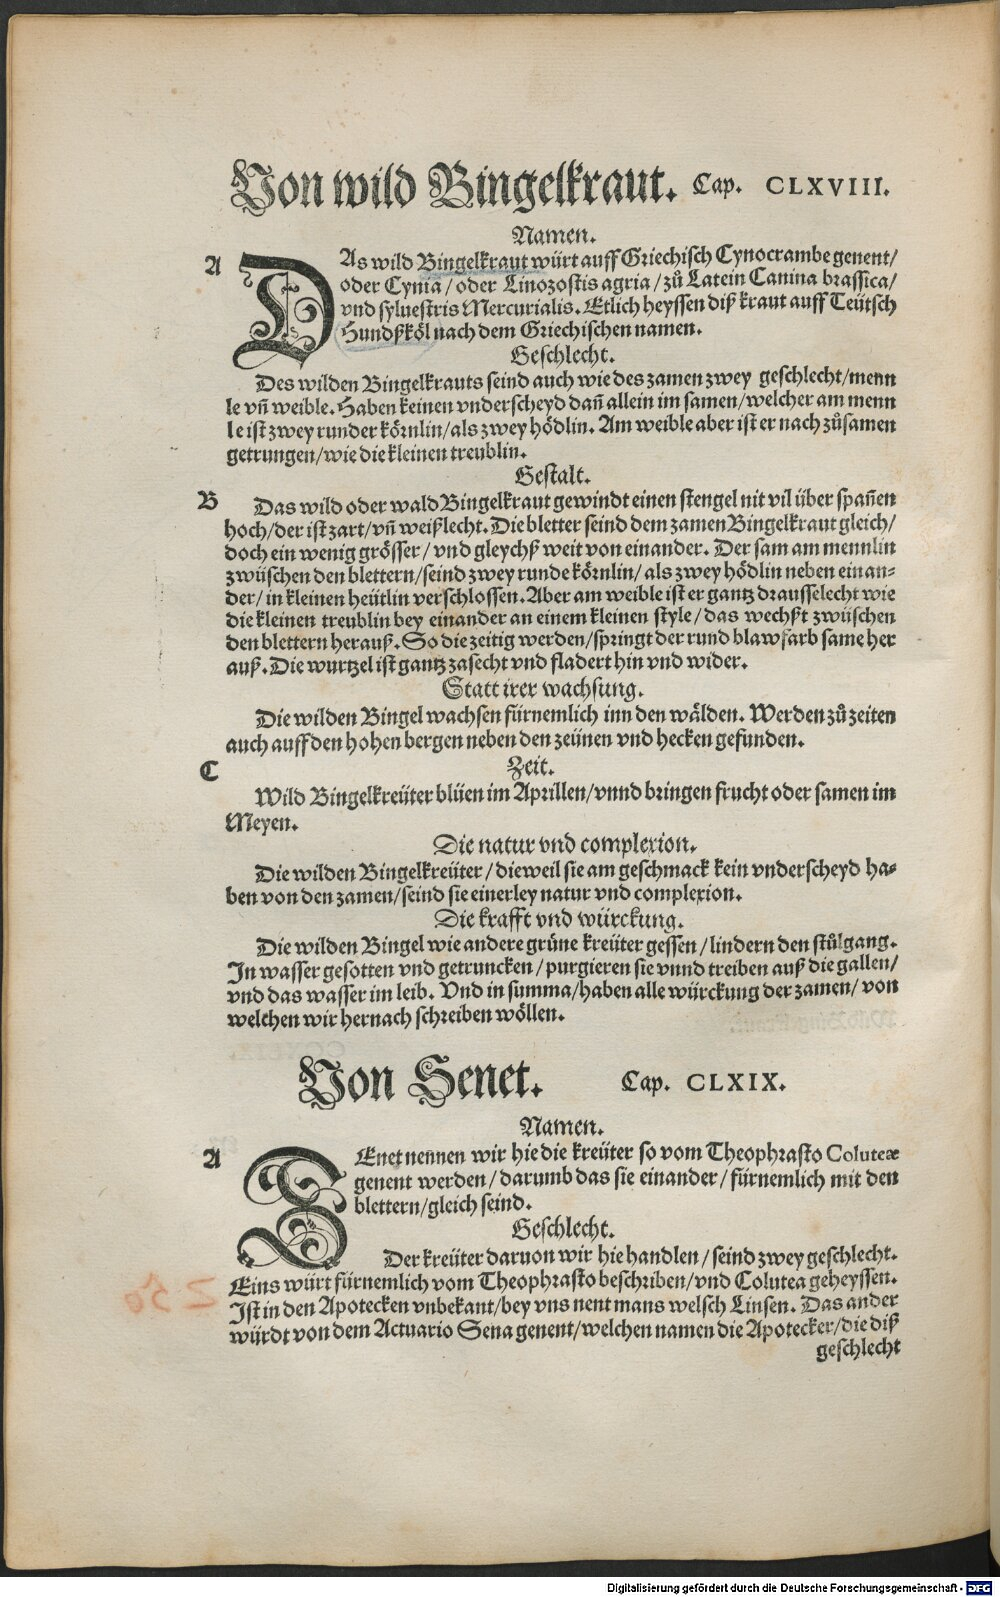 Von wild Bingelkraut. Cap. CLXVIII.
Namen.
A
DAs wild Bingelkraut würt auff Griechisch Cynocrambe genent/
oder Cynia/ oder Linozostis agria/ zů Latein Canina brassica/
vnd syluestris Mercurialis. Etlich heyssen diß kraut auff Teütsch
Hundßköl nach dem Griechischen namen.
Geschlecht.
Des wilden Bingelkrauts seind auch wie des zamen zwey geschlecht/menn
le vñ weible. Haben keinen vnderscheyd dañ allein im samen/welcher am menn
le ist zwey runder körnlin/als zwey hödlin. Am weible aber ist er nach zůsamen
getrungen/wie die kleinen treublin.
Gestalt.
B
Das wild oder wald Bingelkraut gewindt einen stengel nit vil über spañen
hoch/der ist zart/vñ weißlecht. Die bletter seind dem zamen Bingelkraut gleich/
doch ein wenig grösser/ vnd gleychß weit von einander. Der sam am mennlin
zwüschen den blettern/seind zwey runde körnlin/ als zwey hödlin neben einan-
der/ in kleinen heütlin verschlossen. Aber am weible ist er gantz drausselecht wie
die kleinen treublin bey einander an einem kleinen style/das wechßt zwüschen
den blettern herauß. So die zeitig werden/springt der rund blawfarb same her
auß. Die wurtzel ist gantz zasecht vnd fladert hin vnd wider.
Statt irer wachsung.
Die wilden Bingel wachsen fürnemlich inn den wälden. Werden zů zeiten
auch auff den hohen bergen neben den zeünen vnd hecken gefunden.
C
Zeit.
Wild Bingelkreüter blüen im Aprillen/vnnd bringen frucht oder samen im
Meyen.
Die natur vnd complexion.
Die wilden Bingelkreüter/dieweil sie am geschmack kein vnderscheyd ha-
ben von den zamen/seind sie einerley natur vnd complexion.
Die krafft vnd würckung.
Die wilden Bingel wie andere grüne kreüter gessen/lindern den stůlgang.
In wasser gesotten vnd getruncken/purgieren sie vnnd treiben auß die gallen/
vnd das wasser im leib. Vnd in summa/haben alle würckung der zamen/ von
welchen wir hernach schreiben wöllen.
Von Senet. Cap. CLXIX.
Namen.
A
SEnet nennen wir hie die kreüter so vom Theophrasto Coluteæ
genent werden/darumb das sie einander/fürnemlich mit den
blettern/gleich seind.
Geschlecht.
Der kreüter daruon wir hie handlen/seind zwey geschlecht.
Eins würt fürnemlich vom Theophrasto beschriben/vnd Colutea geheyssen.
Ist in den Apotecken vnbekant/bey vns nent mans welsch Linsen. Das ander
würdt von dem Actuario Sena genent/welchen namen die Apotecker/die diß
geschlecht
Digitalisierung gefördert durch die Deutsche Forschungsgemeinschaft - DFG